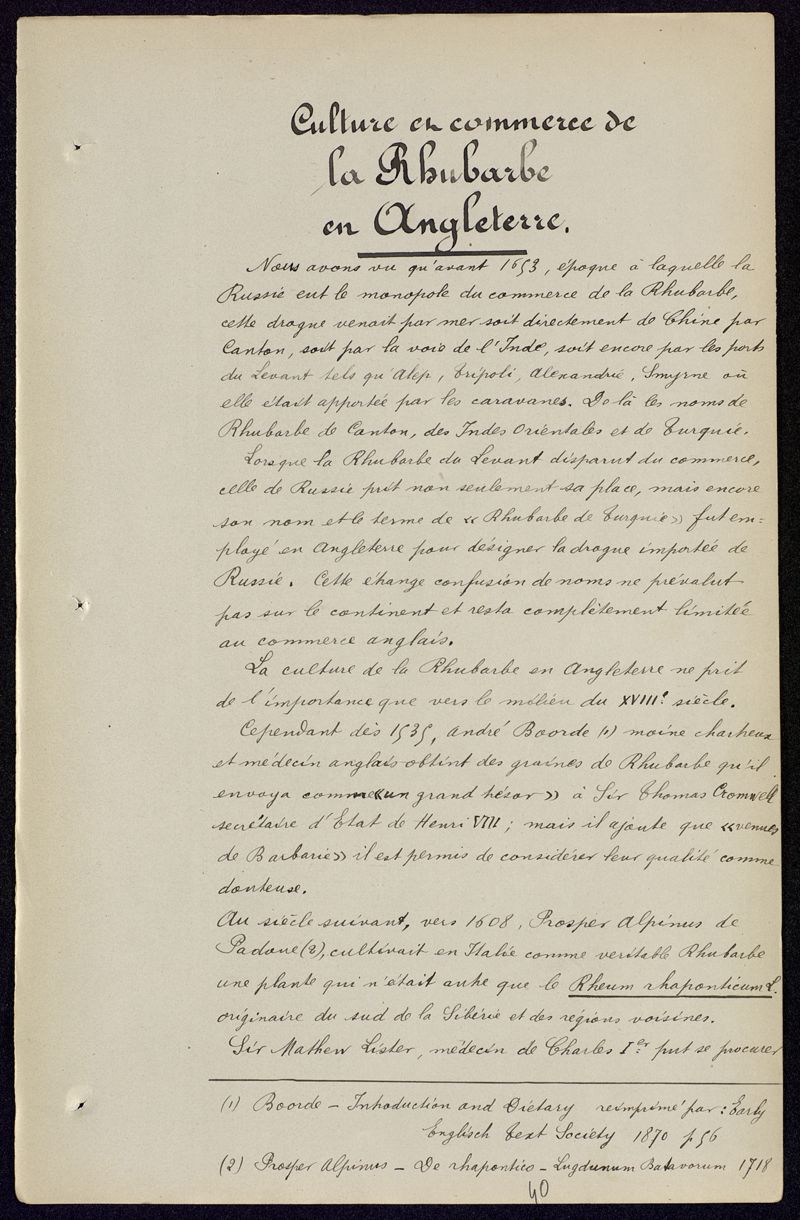 Culture et commerce de
la Rhubarbe
en Angleterre.
Nous avons vu qu'avant 1653, époque à laquelle la
Russie eut le monopole du commerce de la Rhubarbe,
cette drogue venait par mer soit directement de Chine par
Canton, soit par la voie de l'Inde, soit encore par les ports
du Levant tels qu'Alep, Tripoli, Alexandrie, Smyrne où
elle était apportée par les caravanes. De là les noms de
Rhubarbe de Canton, des Indes Orientales et de Turquie.
Lorsque la Rhubarbe du Levant disparut du commerce,
celle de Russie prit non seulement sa place, mais encore
son nom et le terme de « Rhubarbe de Turquie » fut em=
ployé en Angleterre pour désigner la drogue importée de
Russie. Cette étrange confusion de noms ne prévalut
pas sur le continent et resta complètement limitée
au commerce anglais.
La culture de la Rhubarbe en Angleterre ne prit
de l'importance que vers le milieu du XVIIIe siècle.
Cependant dès 1535, André Boorde (1) moine chartreux
et médecin anglais obtint des graines de Rhubarbe qu'il
envoya comme « un grand trésor » à Sir Thomas Cromwell
secrétaire d'Etat de Henri VIII ; mais il ajoute que « venues
de Barbarie » il est permis de considérer leur qualité comme
douteuse.
Au siècle suivant, vers 1608, Prosper Alpinus de
Padoue (2), cultivait en Italie comme veritable Rhubarbe
une plante qui n'était autre que le Rheum rhaponticum L.
originaire du sud de la Sibérie et des régions voisines.
Sir Mathew Lister, médecin de Charles Ier put se procurer
(1) Boorde - Introduction and Dietary réimprimé par : Early
Englisch Text Society 1870 p 56
(2) Prosper Alpinus - De rhapontico - Lugdunum Batavorum 1718
40